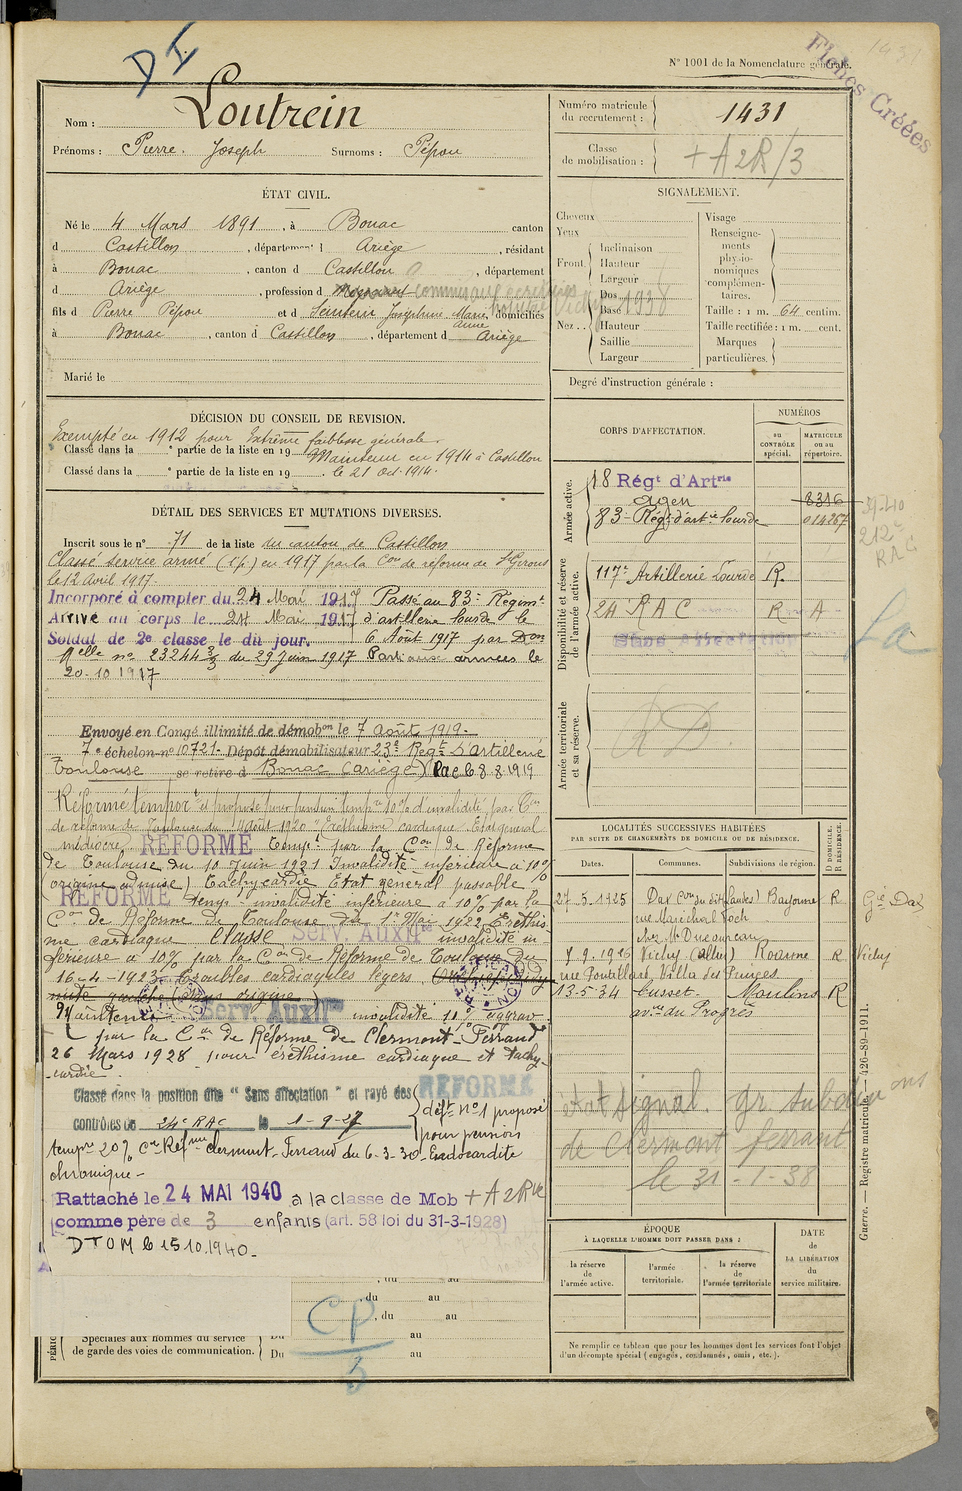 D I
N° 1001 de la Nomenclature générale.
1431
Fiches Créées
Nom : Loutrein
Prénoms : Pierre. Joseph Surnoms : Pépou
Numéro matricule du recrutement : 1431
Classe de mobilisation : + A 2R/3
ÉTAT CIVIL.
Né le 4 Mars 1891, à Bonac canton
d Castillon, département d Ariège, résidant
à Bonac, canton d Castillon, département
d Ariège, profession d commis aux écritures
fils d Pierre Pépou et d Josephine Marie Anne domiciliés
à Bonac, canton d Castillon, département d Ariège
Vichy 1938
Marié le
SIGNALEMENT.
Cheveux
Yeux
Front. Inclinaison
Hauteur
Largeur
Nez . . Dos
Base
Hauteur
Saillie
Largeur
Visage
Renseignements physionomiques complémentaires.
Taille : 1 m. 64 centim.
Taille rectifiée : 1 m. cent.
Marques particulières.
Degré d'instruction générale :
DÉCISION DU CONSEIL DE REVISION.
Exempté en 1912 pour Extrême faiblesse générale.
Classé dans la ° partie de la liste en 19 Maintenu en 1914 à Castillon
Classé dans la ° partie de la liste en 19 . le 21 Oct. 1914.
DÉTAIL DES SERVICES ET MUTATIONS DIVERSES.
Inscrit sous le n° 71 de la liste du canton de Castillon
Classé service armé (1.p.) en 1917 par la Con de réforme de St Girons
le 12 avril 1917.
Incorporé à compter du 24 Mai 1917 Passé au 83e Régimt
Arrivé au corps le 24 Mai 1917 d'artillerie lourde le
Soldat de 2e classe le dit jour. 6 Août 1917 par Don
Mlle n° 23244 3/3 du 29 juin 1917 Parti aux armées le
20-10 1917
Envoyé en Congé illimité de démobon le 7 août 1919.
7e échelon n° 10721. Dépôt démobilisateur 23e Régt d'artillerie
Toulouse se retire à Bonac (Ariège) Rac le 8 8 1919
Réformé temporre et proposé pour pension tempre 10% d'invalidité par Con
de réforme de Toulouse du août 1920 "Eréthisme cardiaque" Etat général
médiocre. RÉFORMÉ Tempre par la Con de Réforme
de Toulouse du 10 Juin 1921 Invalidité inférieure à 10%
origine admise) Tachycardie Etat général passable
RÉFORMÉ temps invalidité inférieure à 10% par la
Con de Réforme de Toulouse du 1er Mai 1922 Eréthis-
me cardiaque Classé Serv. Auxilre invalidité in-
férieure à 10% par la Con de Réforme de Toulouse du
16-4-1923 Troubles cardiaques légers.
Maintenu Serv. Auxilre invalidité 10% aggrav
par la Con de Réforme de Clermont-Ferrand
26 Mars 1928 pour éréthisme cardiaque et tachy-
-cardie
Classé dans la position dite " Sans affectation " et rayé des RÉFORMÉ
contrôles du 24e RAC le 1-9-27 déft n° 1 proposé
pour pension
tempre 20% Con Réfme Clermont-Ferrand du 6-3-30 Endocardite
chronique -
Rattaché le 24 MAI 1940 à la classe de Mob + A 2R
comme père de 3 enfants (art. 58 loi du 31-3-1928)
DTOM le 15.10.1940.
du au
, du au
, du au
Spéciales aux hommes du service de garde des voies de communication. Du au
Du au
CP
3
CORPS D'AFFECTATION.
NUMÉROS
au CONTRÔLE spécial.
MATRICULE ou au répertoire.
Armée active.
18 Régt d'Artrie
Agen 8316
83e Régt d'artie lourde 014267
212e RAC
Disponibilité et réserve de l'armée active.
117e Artillerie Lourde R.
24 RAC R A
Sans affectation
Armée territoriale et sa réserve.
RD
LOCALITÉS SUCCESSIVES HABITÉES
PAR SUITE DE CHANGEMENTS DE DOMICILE OU DE RÉSIDENCE.
Dates. Communes. Subdivisions de région. D. DOMICILE. R. RÉSIDENCE.
27.5.1925 Dax (Landes) Bayonne R Gie Dax
rue Maréchal Foch
7.9.1926 Vichy (Allier) Roanne R Vichy
13-5-34 Cusset. Moulins R
ave du Progrès
état signal. gr. subdivions
de Clermont ferrant
le 31-1-38
ÉPOQUE
À LAQUELLE L'HOMME DOIT PASSER DANS :
la réserve de l'armée active.
l'armée territoriale.
la réserve de l'armée territoriale
DATE de LA LIBÉRATION du service militaire.
Ne remplir ce tableau que pour les hommes dont les services font l'objet
d'un décompte spécial ( engagés, condamnés, omis, etc. ).
Guerre. — Registre matricule. — 426-89-1911.